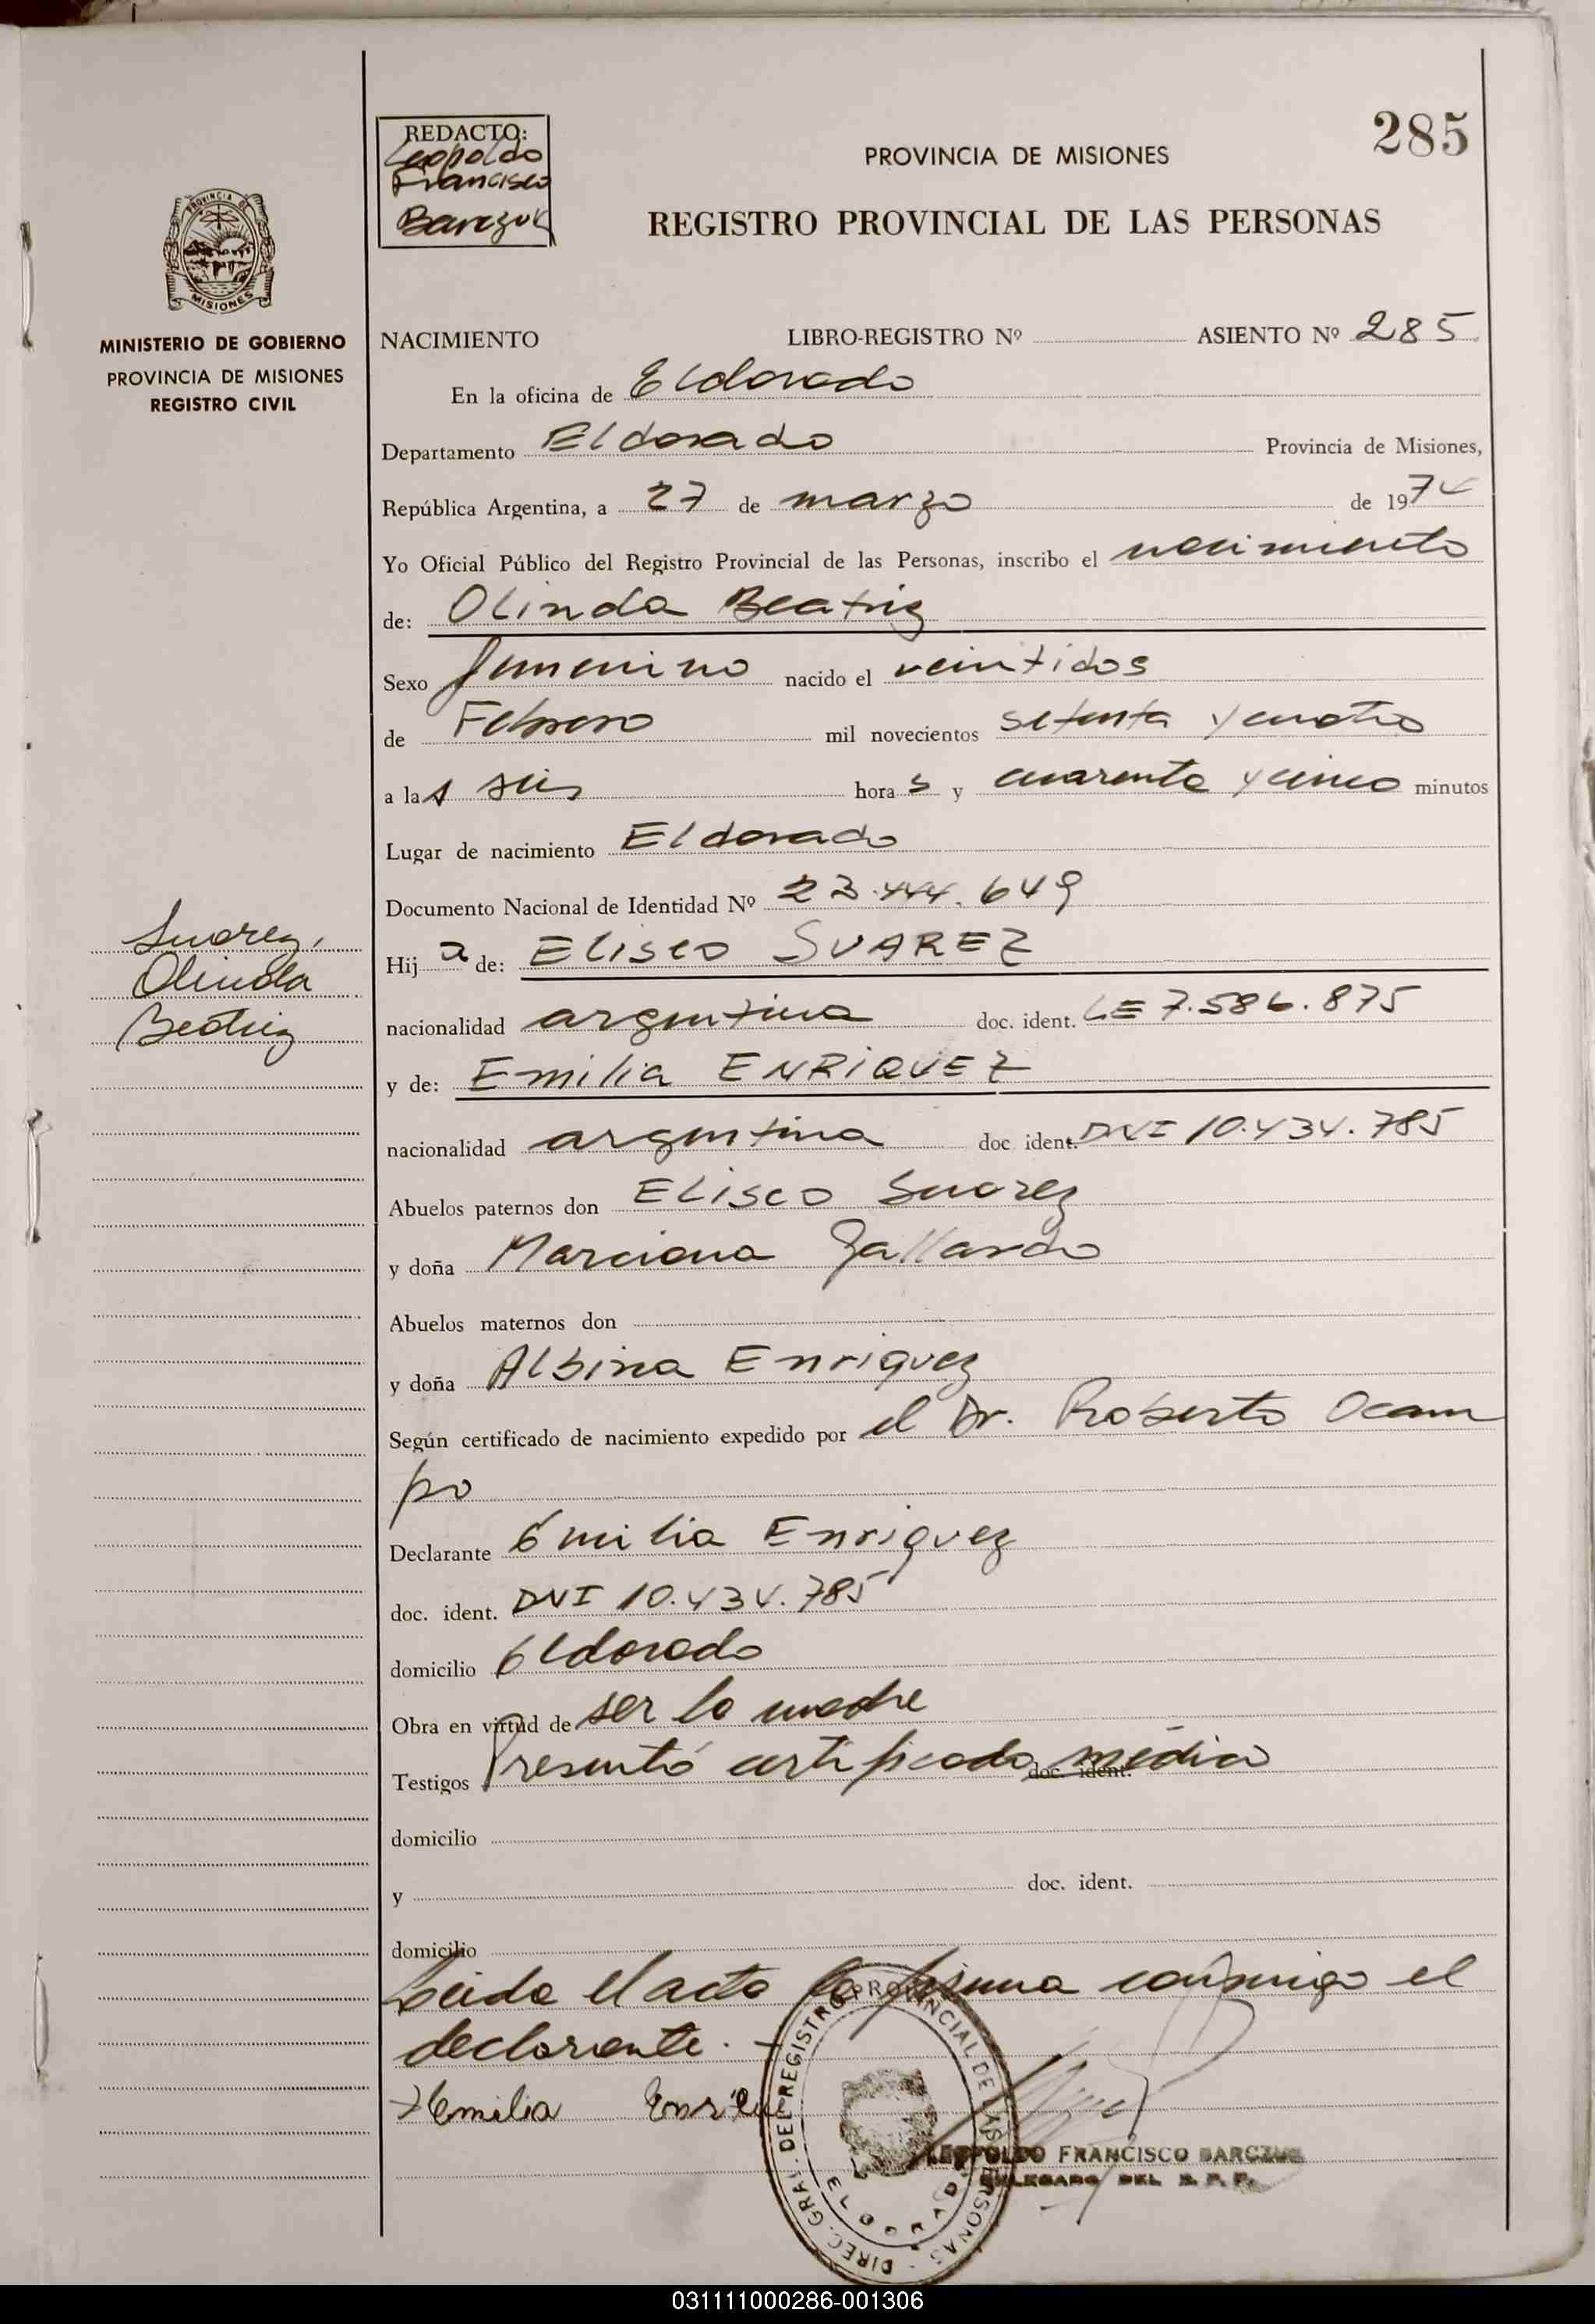 285
REDACTO:
Leopoldo
Francisco
Barczuk
PROVINCIA DE MISIONES
REGISTRO PROVINCIAL DE LAS PERSONAS
PROVINCIA DE
MISIONES
MINISTERIO DE GOBIERNO
PROVINCIA DE MISIONES
REGISTRO CIVIL
NACIMIENTO LIBRO-REGISTRO Nº ASIENTO Nº 285
En la oficina de Eldorado
Departamento Eldorado Provincia de Misiones,
República Argentina, a 27 de marzo de 1974
Yo Oficial Público del Registro Provincial de las Personas, inscribo el nacimiento
de: Olinda Beatriz
Sexo femenino nacido el veintidos
de Febrero mil novecientos setenta y cuatro
a las seis horas y cuarenta y cinco minutos
Lugar de nacimiento Eldorado
Documento Nacional de Identidad Nº 23.444.649
Suarez,
Olinda
Beatriz
Hija de: Eliseo SUAREZ
nacionalidad argentina doc. ident. LE 7.586.875
y de: Emilia ENRIQUEZ
nacionalidad argentina doc ident. DNI 10.434.785
Abuelos paternos don Eliseo Suarez
y doña Marciana Gallardo
Abuelos maternos don
y doña Albina Enriquez
Según certificado de nacimiento expedido por el Dr. Roberto Ocam
po
Declarante Emilia Enriquez
doc. ident. DNI 10.434.785
domicilio Eldorado
Obra en virtud de ser la madre
Testigos Presentó certificado doc. ident. médico
domicilio
y doc. ident.
domicilio
Leida el acta la firma conmigo el
declarante.
Emilia
LEOPOLDO FRANCISCO BARCZUK
DELEGADO DEL R. P. P.
DIREC. GRAL. DEL REGISTRO PROVINCIAL DE LAS PERSONAS
ELDORADO
031111000286-001306